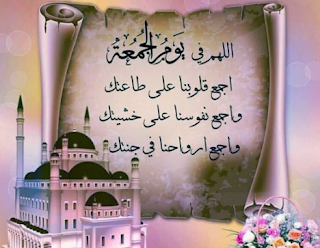 اللهم في يوم الجمعة
اجمع قلوبنا على طاعتك
واجمع نفوسنا على خشيتك
واجمع ارواحنا في جنتك